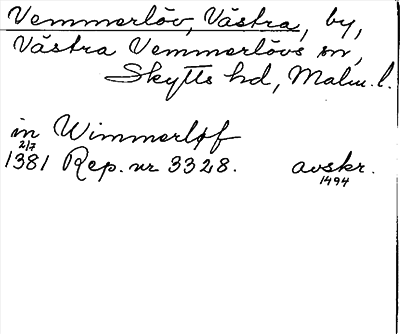 Vemmerlöv, Västra, by,
Västra Vemmerlövs sn,
Skytts hd, Malm. l.
in Wimmerløf
2/7
1381 Rep. nr 3328. avskr.
1494